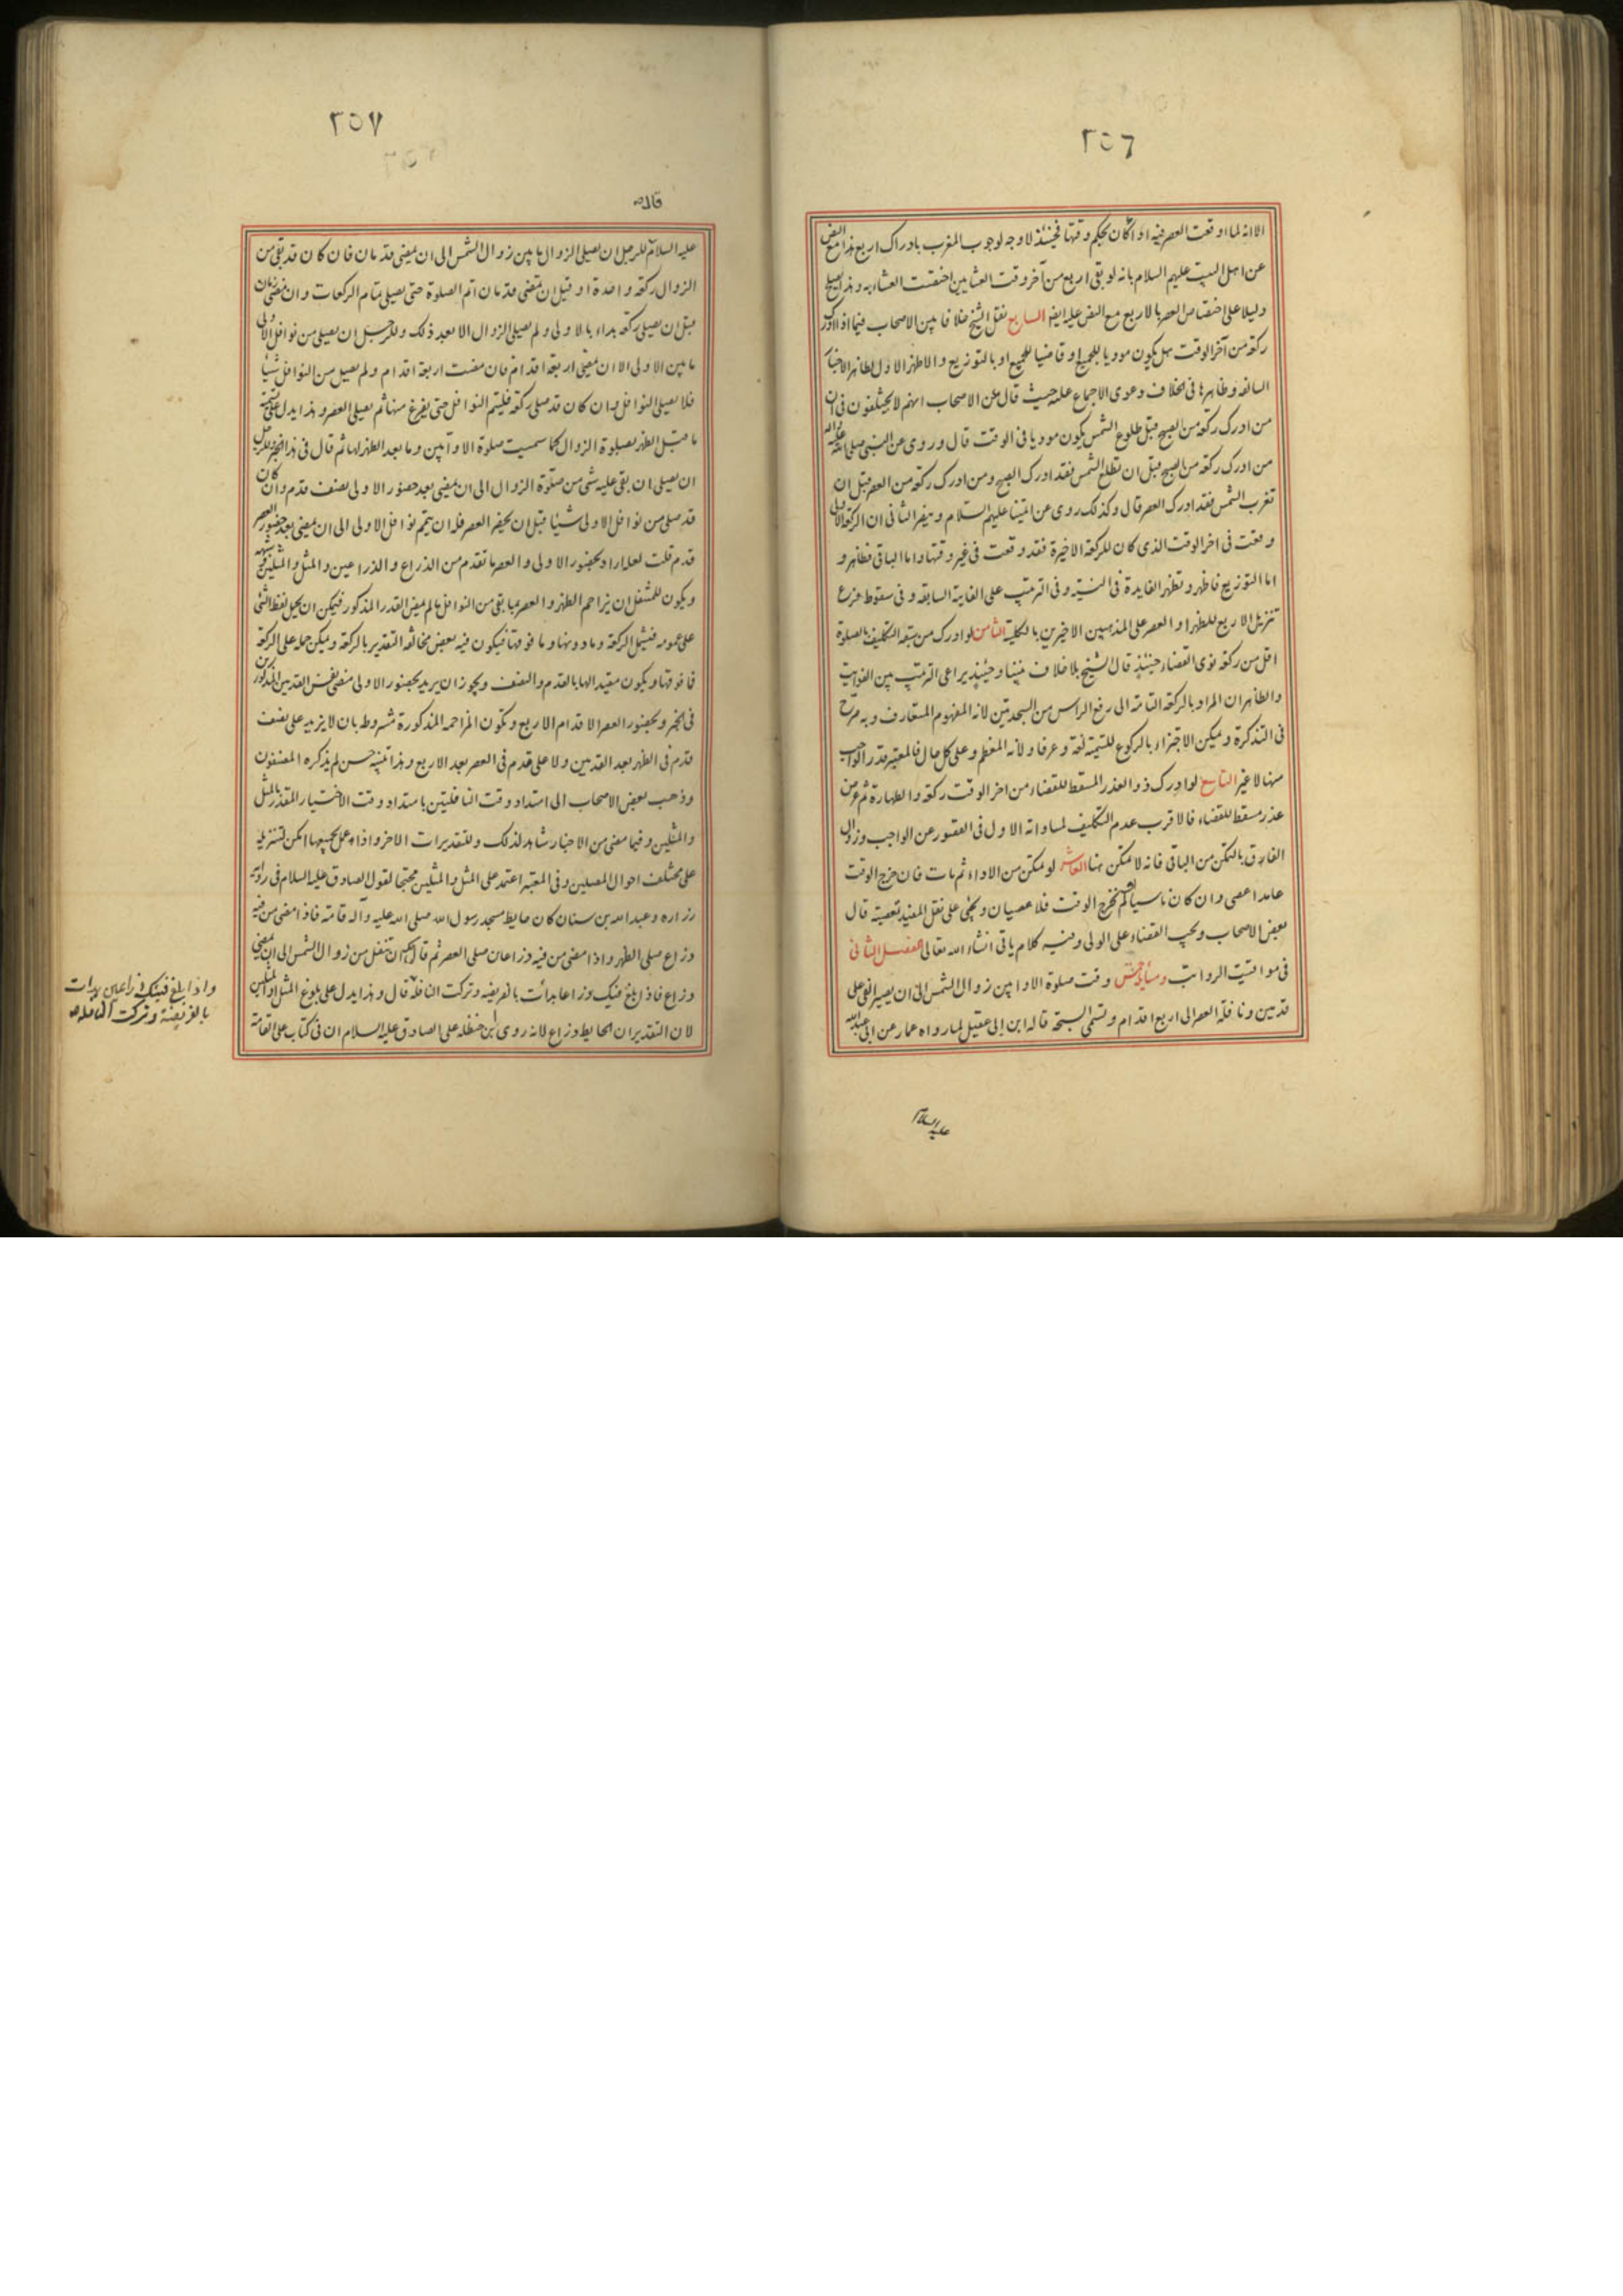 ٢٥٦
الا انه لما اوقعت العصر فيه اداء كان بحكم وقتها فحينئذ لا وجه لوجوب المغرب بادراك اربع هذا مع النص
عن اهل البيت عليهم السلام بانه لو بقى اربع من آخر وقت العشايين اختصت العشاء به وهذا يصلح
دليلا على اختصاص العصر بالاربع مع النص عليه ايضا السابع نقل الشيخ خلافا بين الاصحاب فيما اذا ادرك
ركعة من آخر الوقت هل يكون موديا للجميع او قاضيا للجميع او بالتوزيع والاظهر الاول لظاهر الاخبار
السالفة وظاهرها فى الخلاف دعوى الاجماع عليه حيث قال عن الاصحاب انهم لا يختلفون فى ان
من ادرك ركعة من الصبح قبل طلوع الشمس يكون موديا فى الوقت قال وروى عن النبى صلى الله عليه وآله
من ادرك ركعة من الصبح قبل ان تطلع الشمس فقد ادرك الصبح ومن ادرك ركعة من العصر قبل ان
تغرب الشمس فقد ادرك العصر قال وكذلك روى عن ائمتنا عليهم السلام وينصر الثانى ان الركعة الاولى
وقعت فى اخر الوقت الذى كان للركعة الاخيرة فقد وقعت فى غير وقتها واما الباقى فظاهر و
اما التوزيع فاظهر وتظهر الفايدة فى النية وفى الترتب على الفايتة السابقة وفى سقوط فرع
تنزيل الاربع للظهر او العصر على المذهبين الاخيرين بالكلية الثامن لو ادرك من سبقه التكليف بالصلوة
اقل من ركعة نوى القضاء حينئذ قال الشيخ بلا خلاف بيننا وحينئذ يراعى الترتب بين الفوايت
والظاهر ان المراد بالركعة التامة الى رفع الراس من السجدتين لانه المفهوم المتعارف وبه صرح
فى التذكرة ويمكن الاجتزاء بالركوع للتسمية لغة وعرفا ولانه المعظم وعلى كل حال فالمعتبر قدر الواجب
منها لا غير التاسع لو ادرك ذو العذر المسقط للقضاء من اخر الوقت ركعة والطهارة ثم عرض
عذر مسقط للقضاء فالاقرب عدم التكليف لمساواته الاول فى القصور عن الواجب وزوال
الفارق بالتمكن من الباقى فانه لا تمكن هنا العاشر لو تمكن من الاداء ثم مات فان خرج الوقت
عامدا عصى وان كان ناسيا او لم يخرج الوقت فلا عصيان ويجئ على نقل المفيد تعصيته قال
بعض الاصحاب ويجب القضاء على الولى وفيه كلام ياتى انشاء الله تعالى الفصل الثانى
فى مواقيت الرواتب ومسائله خمس وقت صلوة الاوابين زوال الشمس الى ان يصير الفئ على
قدمين ونافلة العصر الى اربع اقدام وتسمى السبحة قاله ابن ابى عقيل لما رواه عمار عن ابى عبدالله
عليه السلام
٢٥٧
قال
عليه السلام للرجل ان يصلى الزوال ما بين زوال الشمس الى ان يمضى قدمان فان كان قد بقى من
الزوال ركعة واحدة او قبل ان تمضى قدمان اتم الصلوة حتى يصلى تمام الركعات وان مضى قدمان
قبل ان يصلى ركعة بداء بالاولى ولم يصلى الزوال الا بعد ذلك وللرجل ان يصلى من نوافل الاولى
ما بين الاولى الا ان تمضى اربعة اقدام فان مضت اربعة اقدام ولم يصل من النوافل شيئا
فلا يصلى النوافل وان كان قد صلى ركعة فليتم النوافل حتى يفرغ منها ثم يصلى العصر وهذا يدل على تسمية
ما قبل الظهر بصلوة الزوال كما سميت صلوة الاوابين وما بعد الظهر لها ثم قال فى هذا الخبر وللرجل
ان يصلى ان بقى عليه شئ من صلوة الزوال الى ان يمضى بعد حضور الاولى نصف قدم وان كان
قد صلى من نوافل الاولى شيئا قبل ان يحضر العصر فله ان يتم نوافل الاولى الى ان يمضى بعد حضور العصر
قدم قلت لعله اراد بحضور الاولى والعصر ما تقدم من الذراع والذراعين والمثل والمثلين وشبهه
ويكون للمتنفل ان يزاحم الظهر والعصر بما بقى من النوافل ما لم يمض القدر المذكور فيمكن ان يحمل لفظ الشئ
على عمومه فيشمل الركعة وما دونها وما فوقها فيكون فيه بعض مخالفة التقدير بالركعة ويمكن حمله على الركعة
فما فوقها ويكون مقيدا لها بالقدم والنصف ويجوز ان يريد بحضور الاولى مضى نفس القدمين المذكورين
فى الخبر وبحضور العصر الاقدام الاربع وتكون المزاحمة المذكورة مشروطة بان لا يزيد على نصف
قدم فى الظهر بعد القدمين ولا على قدم فى العصر بعد الاربع وهذا تنبيه حسن لم يذكره المصنفون
وذهب بعض الاصحاب الى امتداد وقت النافلتين بامتداد وقت الاختيار المقدر بالمثل
والمثلين وفيما مضى من الاخبار شاهد لذلك وللتقديرات الاخر واذا عمل بجميعها امكن تنزيله
على مختلف احوال المصلين وفى المعتبر اعتمد على المثل والمثلين محتجا لقول الصادق عليه السلام فى رواية
زراره وعبدالله بن سنان كان حايط مسجد رسول الله صلى الله عليه وآله قامة فاذا مضى من فيه
ذراع صلى الظهر واذا مضى من فيه ذراعان صلى العصر ثم قال لك ان تتنفل من زوال الشمس الى ان يمضى
ذراع فاذا بلغ فيئك ذراعا بدأت بالفريضه وتركت النافلة قال وهذا يدل على بلوغ المثل والمثلين
لان التقدير ان الحايط ذراع لانه روى ابن حنظلة على الصادق عليه السلام ان فى كتاب على القامة
واذا بلغ فيئك ذراعين بدأت
بالفريضة وتركت النافلة